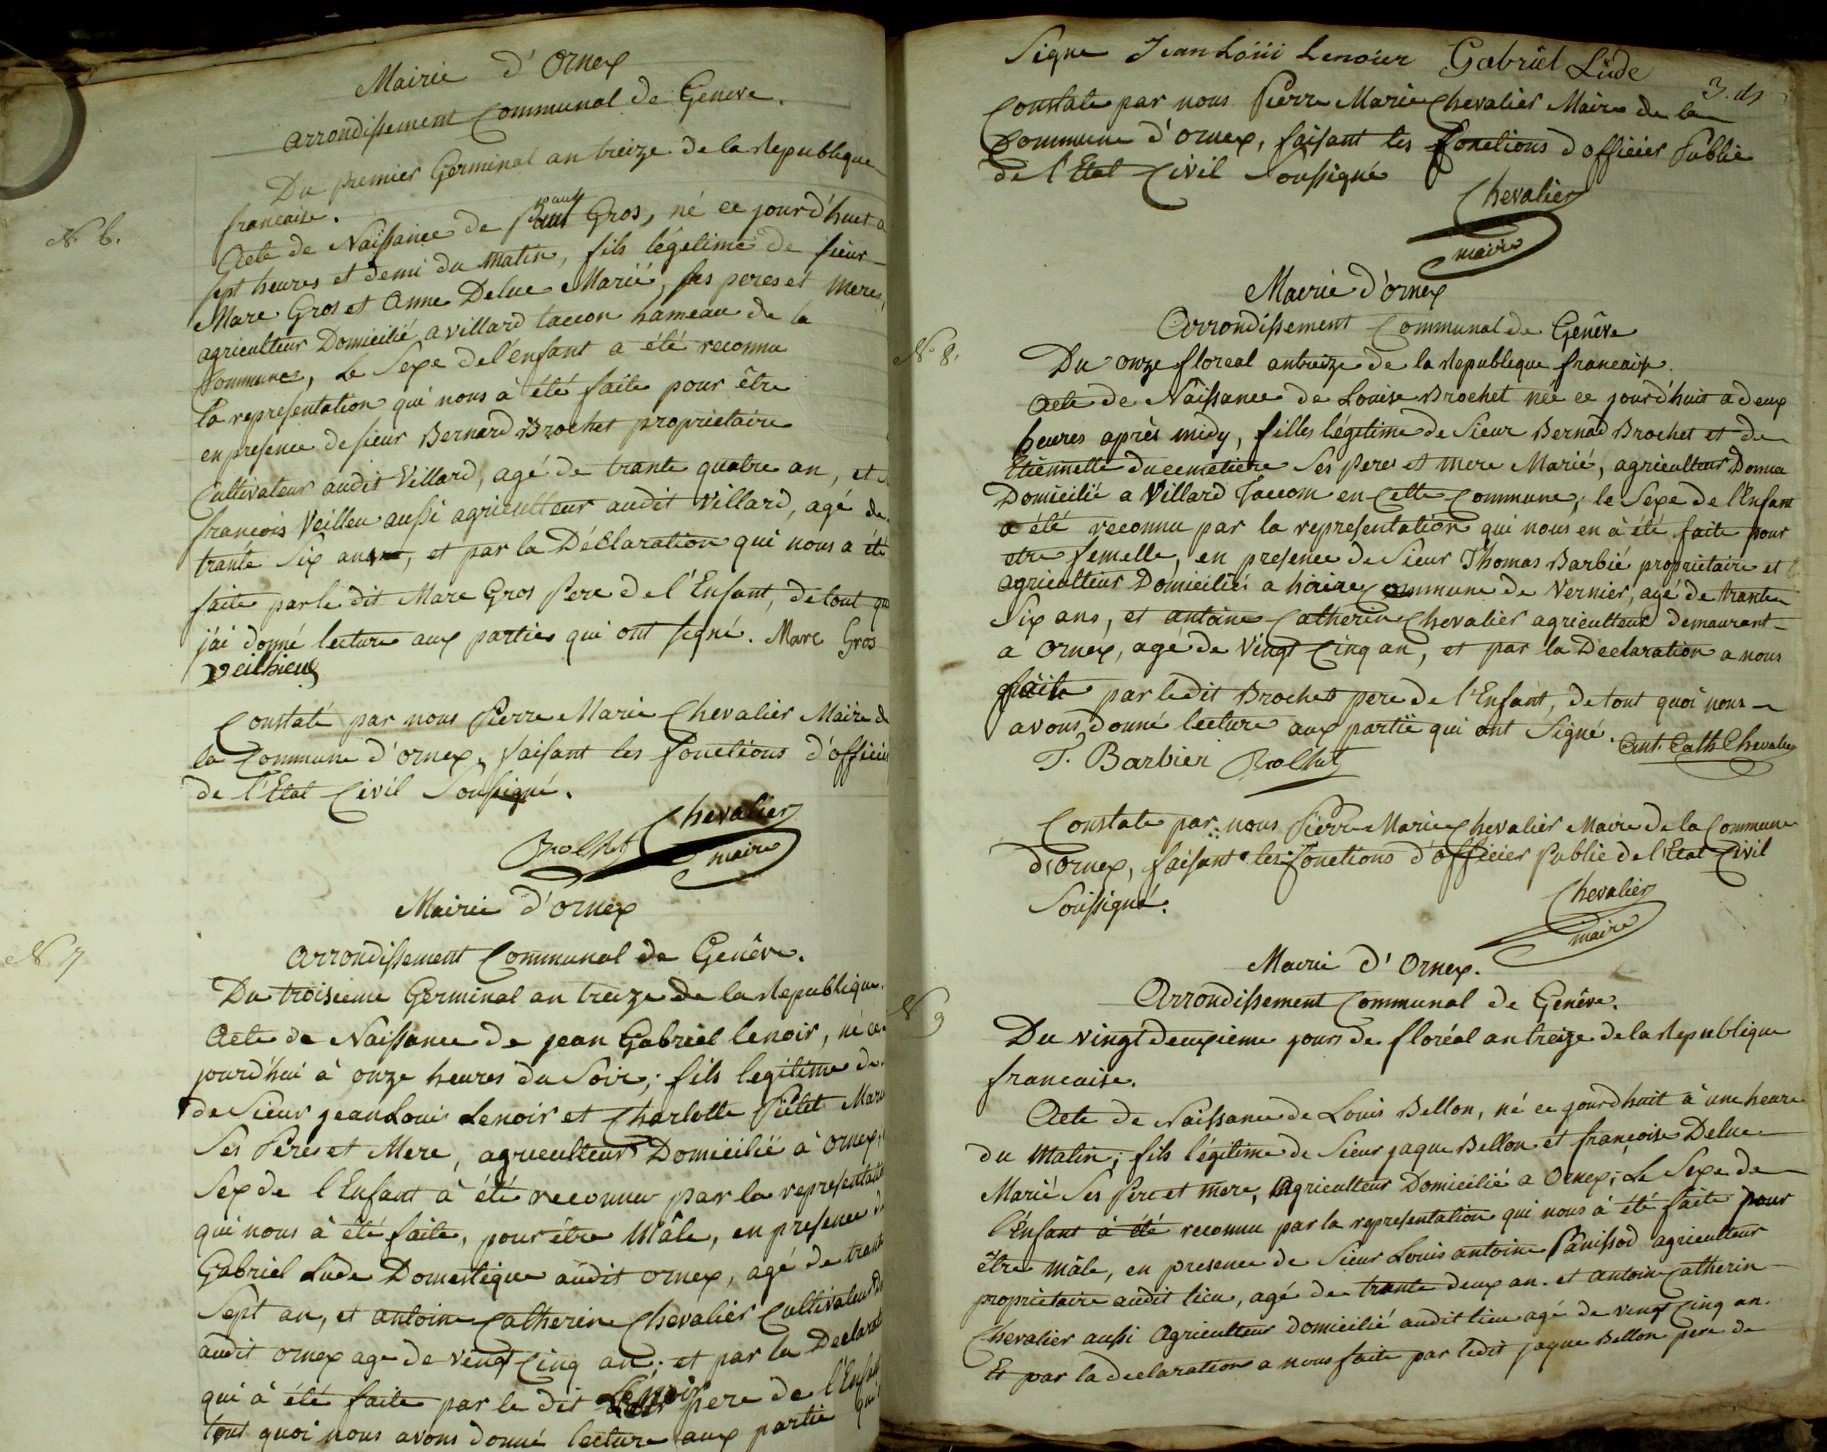 Mairie d'Ornex
arrondissement Communal de Geneve.
Du premier Germinal an treize de la Republique
francaise.
N. 6.
Acte de Naissance de Paul Gros, né ce jourd'huit a
sept heures et demi du matin, fils légetime de sieur
Marc Gros et Anne Deluc Marié, ses peres et meres,
agriculteur Domicilié a villard taccon hameau de la
Commune, Le Sexe de l'enfant a été reconnu
la representation qui nous à été faite pour être
en presence de sieur Bernard Brochet proprietaire
Cultivateur audit Villard, agé de trante quatre an, et
francois Veilleu aussi agriculteur audit villard, agé de
trante six ans, et par la Déclaration qui nous a été
faite par le dit Marc Gros Pere de l'Enfant, de tout
j'ai donné lecture aux parties qui ont signé. Marc Gros
Veilheux
Constaté par nous Pierre Marie Chevalier Maire d
la Commune d'ornex, faisant les fonctions d'officier
de l'Etat Civil Soussigné.
Brochet Chevalier
maire
Mairie d'ornex
N 7
arrondissement Communal de Genêve.
Du troisieme Germinal an treize de la Republique.
Acte de Naissance de jean Gabriel lenoir, né ce
jourd'hui à onze heures du Soir; fils legitime de
de Sieur jean Loui Lenoir et Charlotte Pictet Marié
Ses Peres et Mere, agriculteur Domicilié à Ornex,
Sex de l'Enfant à été reconnu par la representation
qui nous à été faite, pour être Mâle, en presence d
Gabriel Lude Domestique audit ornex, agé de trante
Sept an, et antoine Catherin Chevalier Cultivateur
audit ornex age de vengt Cinq an; et par la Declarat
qui à été faite par le dit Lenoir pere de l'Enfant
tout quoi nous avons donné lecture aux partie qui
Signe Jean Loüii Lenoier Gabriel Lude
3. ds
Constate par nous Pierre Marie Chevalier Maire de la
Commune d'ornex, faisant les fonctions d'officier Public
de l'Etat Civil Soussigné
Chevalier
maire
Mairie d'ornex
Arrondissement Communal de Genêve
N. 8.
Du onze floreal an treize de la Republique francaise.
Acte de Naissance de Louise Brochet née ce jourd'huit a deux
heures après midy, filles légitime de Sieur Bernad Brochet et de
Etiennette ducemetiere Ses Peres et mere Marié, agriculteur Domma
Domicilié a Villard Taccom en Cette Commune; le Sexe de l'Enfant
a été reconnu par la representation qui nous en à été faite pour
etre femelle, en presence de Sieur Thomas Barbié proprietaire et
agriculteur Domicilié a hoire Commune de Vernier, agé de trante
Six ans, et antoine Catherin Chevalier agriculteur demaurant
a Ornex, agé de Vingt Cinq an, et par la Declaration a nous
faite par ledit Brochet pere de l'Enfant, de tout quoi nous
avons donné lecture aux partie qui ont Signé. Ant. Cath Chevalier
T. Barbier Brochet
Constate par nous Pierre Marie Chevalier Maire de la Commune
d'Ornex, faisant les fonctions d'officier Public de l'Etat Civil
Soussigné.
Chevalier
maire
Mairie d'Ornex.
Arrondissement Communal de Genêve.
N 9
Du vingt deuxieme jours de floréal an treize de la Republique
francaise.
Acte de Naissance de Louis Bellon, né ce jourd'huit à une heure
du Matin; fils légitime de Sieur jaque Bellon et françoise Deluc
Marié Ses Pere et mere, Agriculteur Domicilié a Ornex; Le Sexe de
l'Enfant à été reconnu par la representation qui nous à été faite pour
être mâle, en presence de Sieur Louis antoine Panissod agriculteur
proprietaire audit lieu, agé de trante deux an. et antoin Catherin
Chevalier aussi Agriculteur domicilié audit lieu agé de vengt Cinq an.
Et par la declaration a nous faite par ledit jaque Bellon pere de